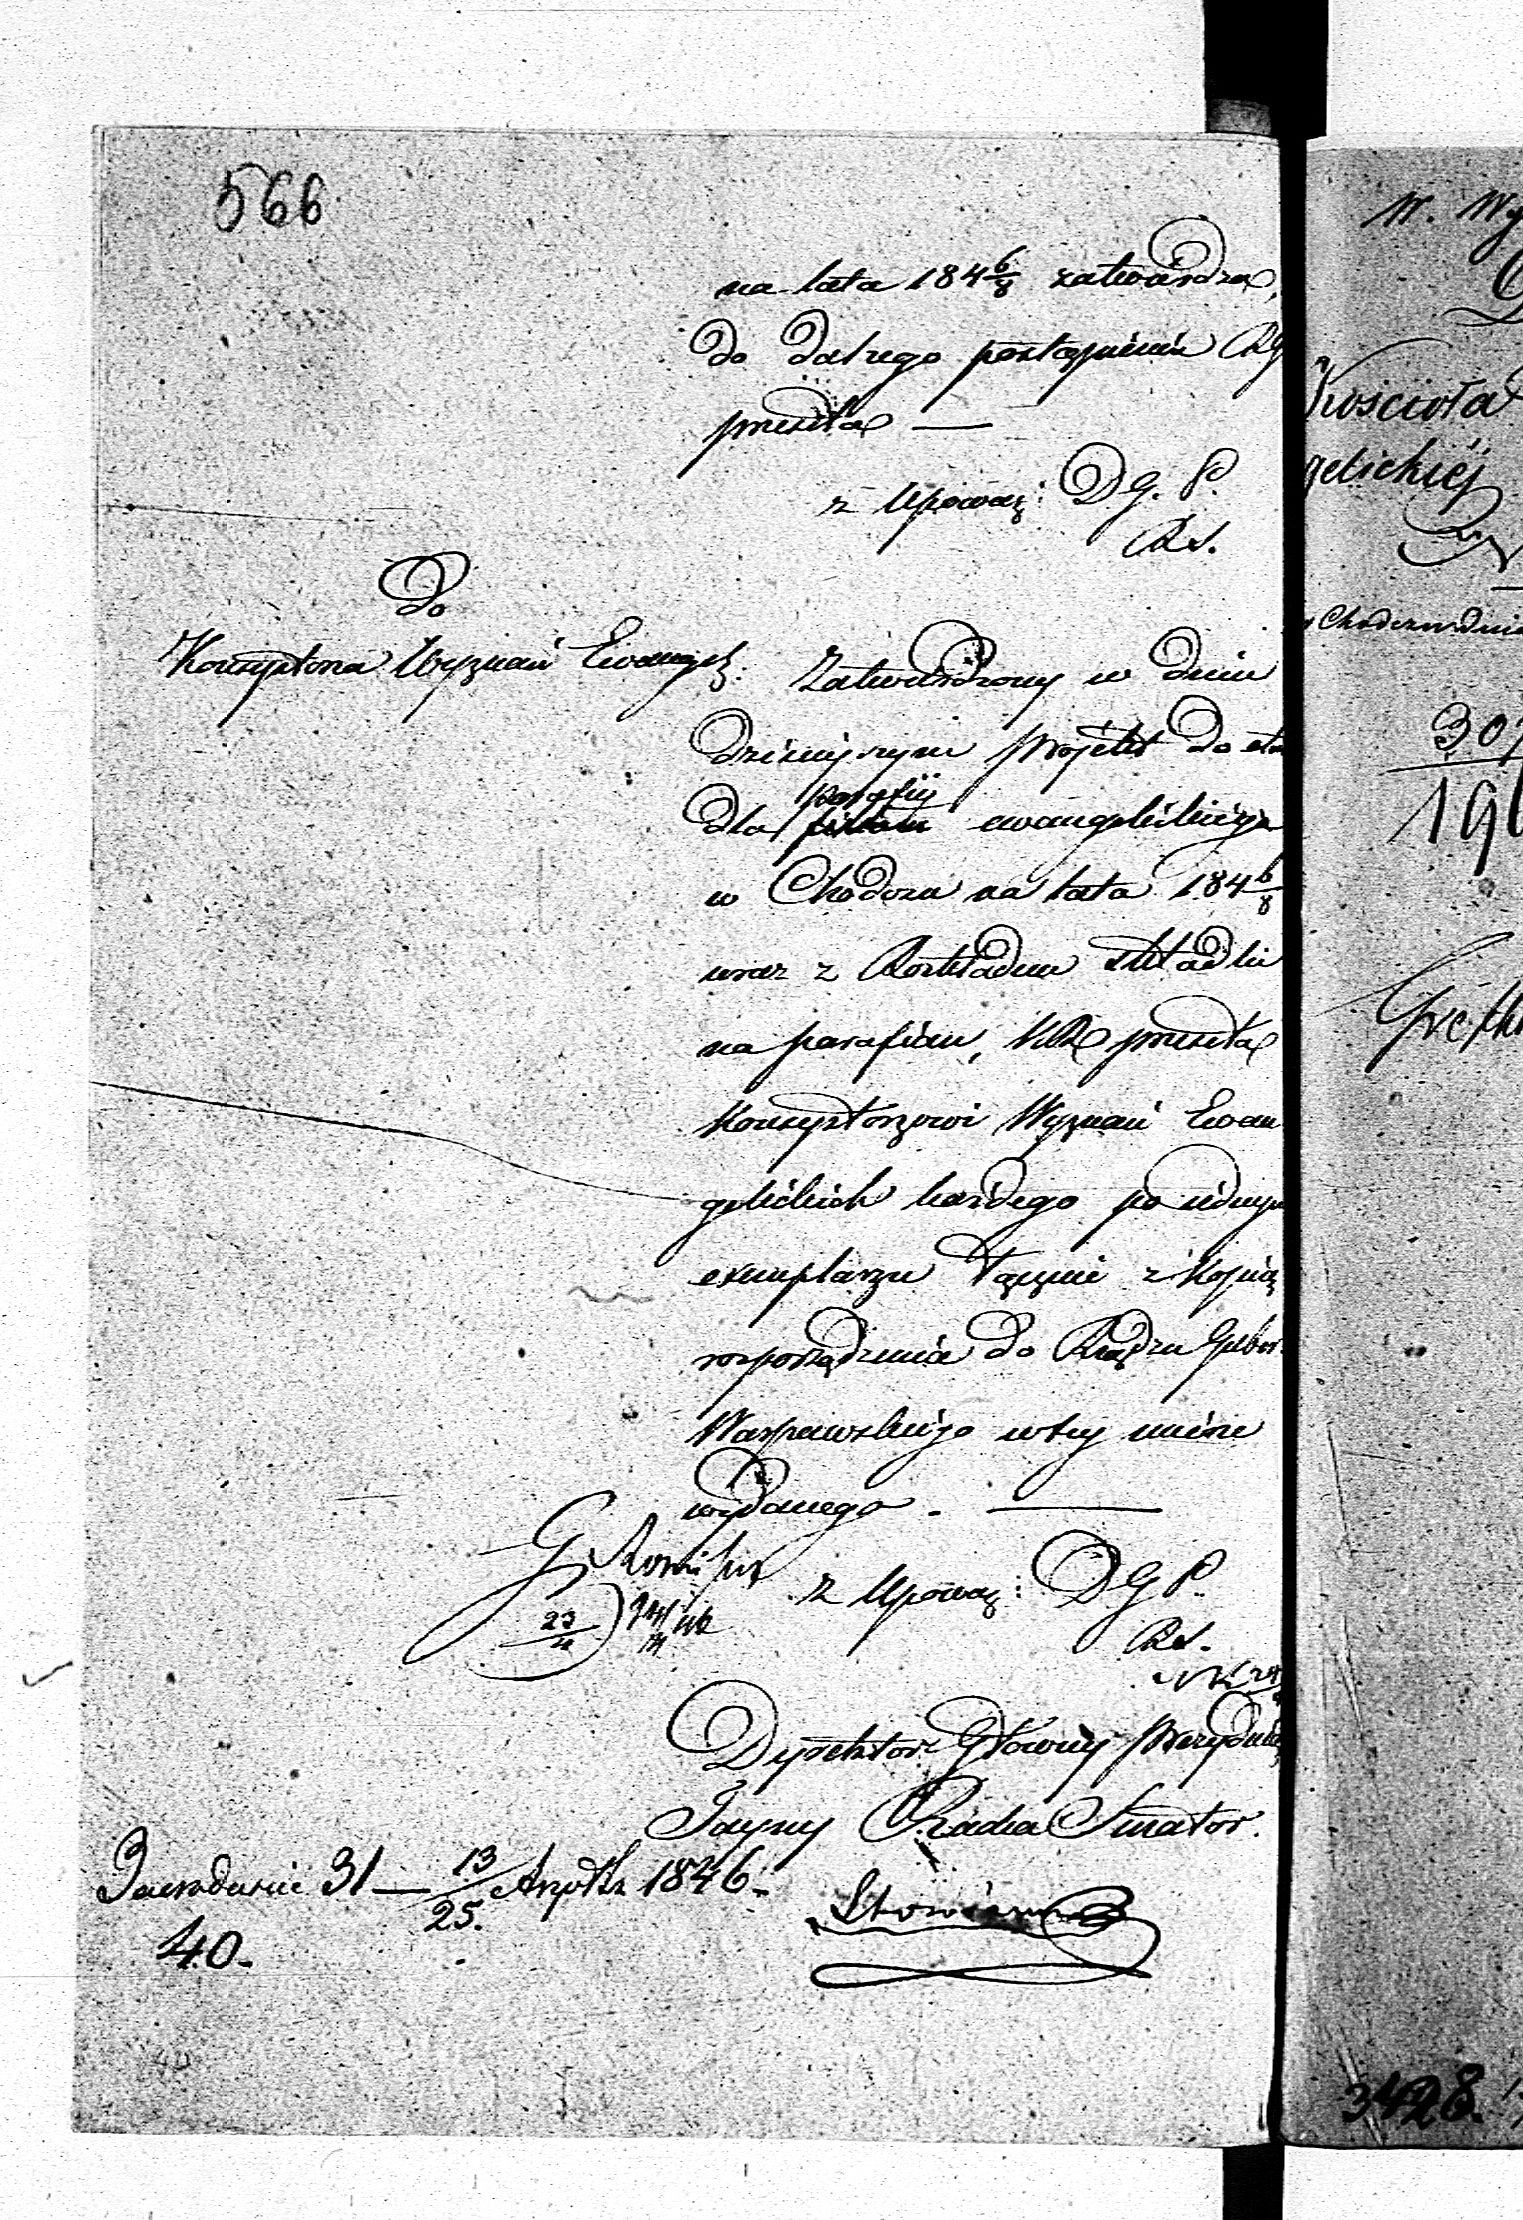 566
na lata 184 6/8 zatwierdza,
do dalszego postąpienia RG
przesyła —
z Upoważ: D G. P.
Rs.
Do
Konsystorza Wyznań Ewangel:
Zatwierdzony w dniu
dzisiejszym projekt do eta
dla parafii ewangelickiej
w Chodczu na lata 184 6/8
wraz z Rozkładem składki
na parafian, KR przesyła
Konsystorzowi Wyznań Ewan
gelickich każdego po jednym
exemplarzu łącznie z kopią
rozporządzenia do Rządu Guber.
Warszawskiego w tej mierze
wydanego. —
23/4
z Upoważ: D G P.
Rs.
Dyrektor Główny Prezyduj
Tayny Radca Senator.
31 — 13/25 1846.
40.
Kościoła
gelickiéj
3428.